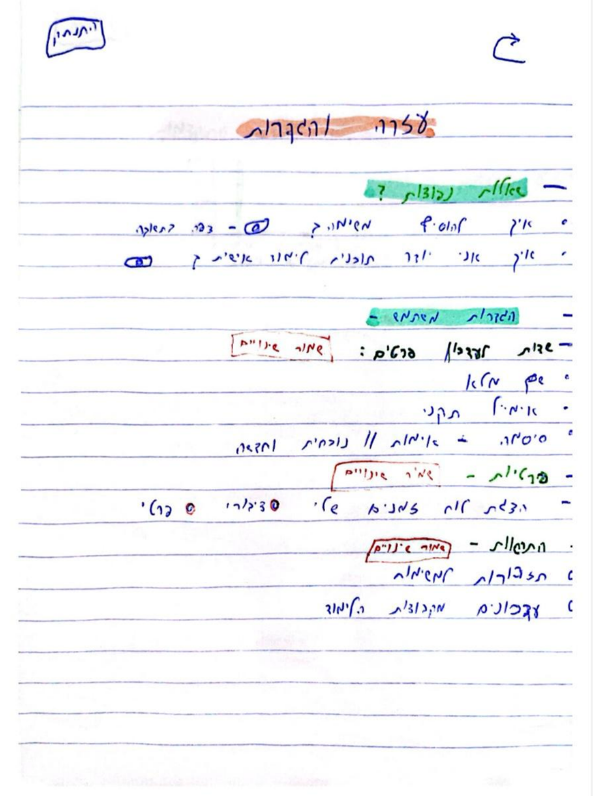 התנתק
עזרה והגדרות
– שאלות נפוצות ?
• איך להוסיף משימה ? – דף בתשובה
• איך אני יוצר תוכנית לימוד אישית ?
– הגדרות משתמש –
– שדות לעדכון פרטים : שמור שינויים
• שם מלא
• אימייל תקני
• סיסמה – אימות // נוכחית וחדשה
– פרטיות – שמור שינויים
– הצגת לוח זמנים שלי ציבורי פרטי
• התראות – שמור שינויים
תזכורות למשימות
עדכונים מקבוצות הלימוד